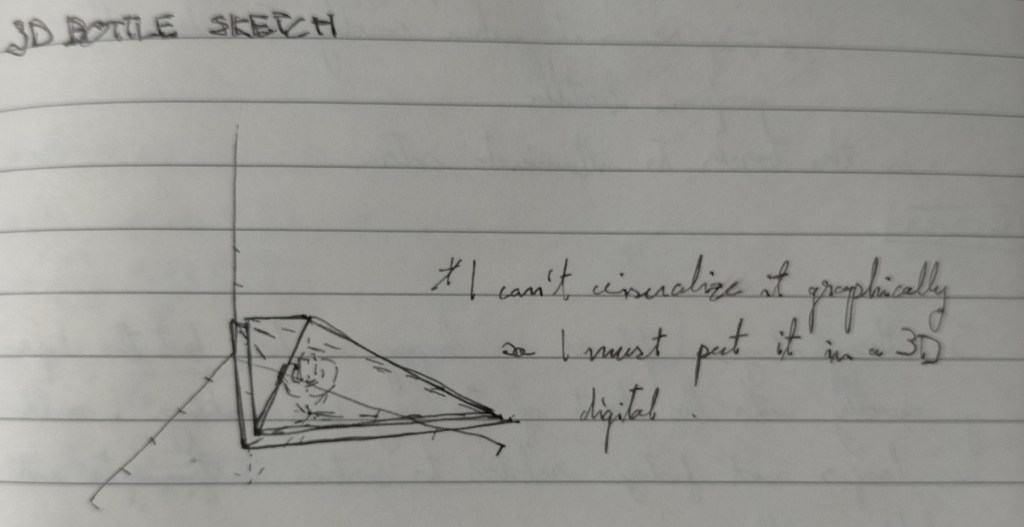 3D BOTTLE SKETCH
* I can't visualize it graphically
so I must put it in a 3D
digital.